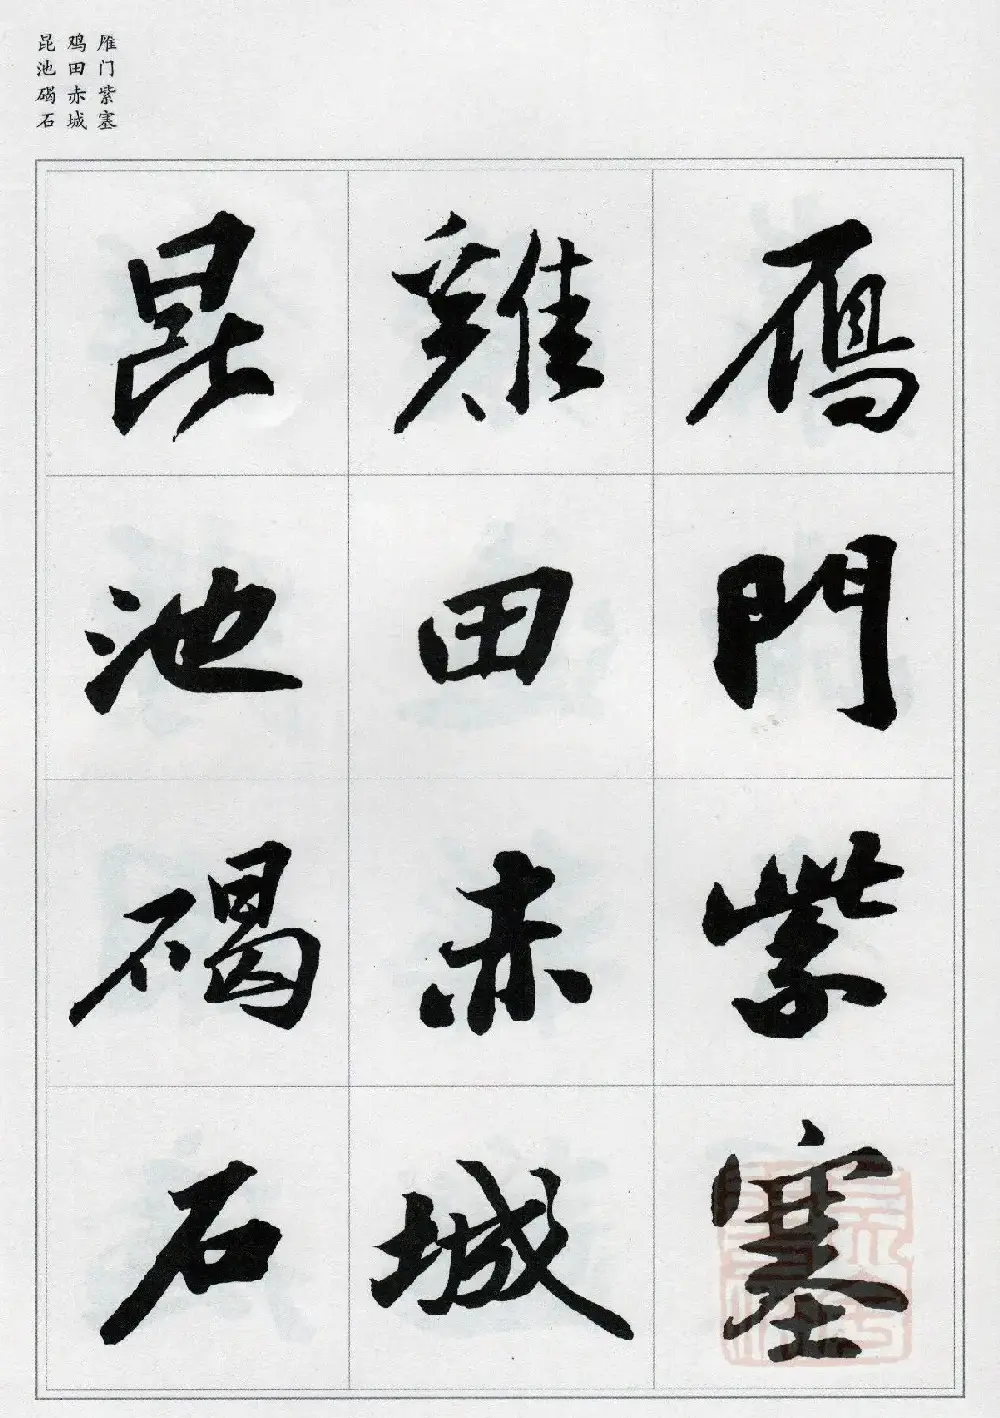 雁门紫塞
鸡田赤城
昆池碣石
鴈門紫塞
雞田赤城
昆池碣石